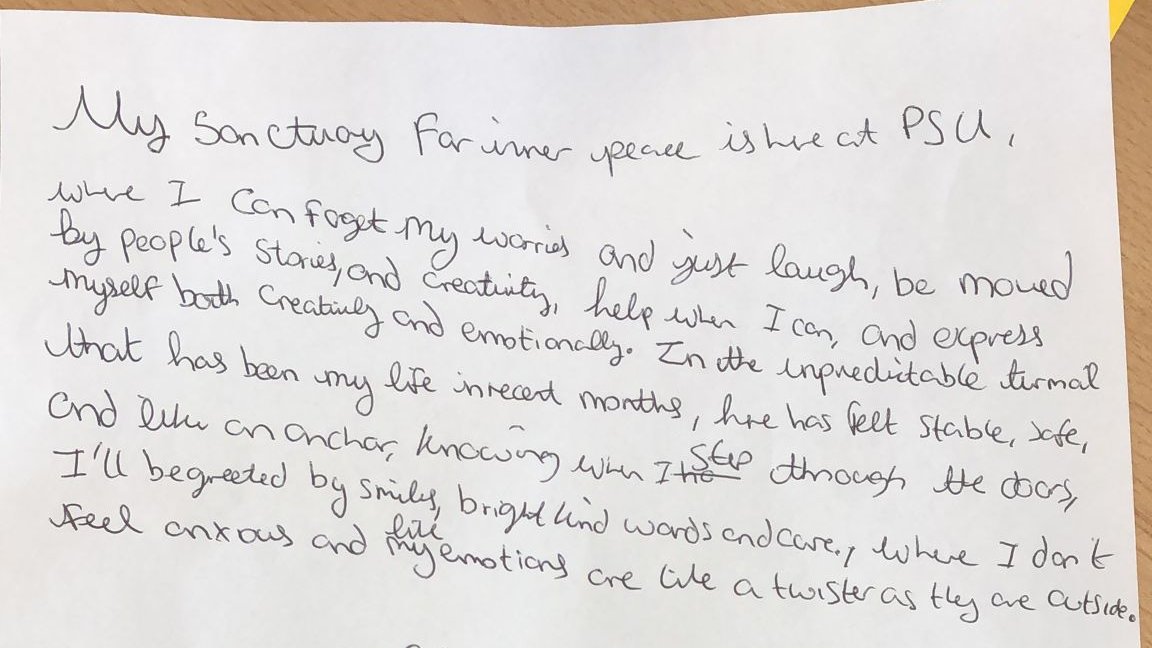 My Sanctuary For inner peace is here at PSU,
where I can foget my worries and just laugh, be moved
by people's stories, and creativity, help when I can, and express
myself both creatively and emotionally. In the unpredictable turmal
that has been my life in recent months, here has felt stable, safe,
and like an anchar, knowing when I step through the doors,
I'll be greeted by smiles, bright kind words and care., where I don't
feel anxous and like my emotions are like a twister as they are outside.